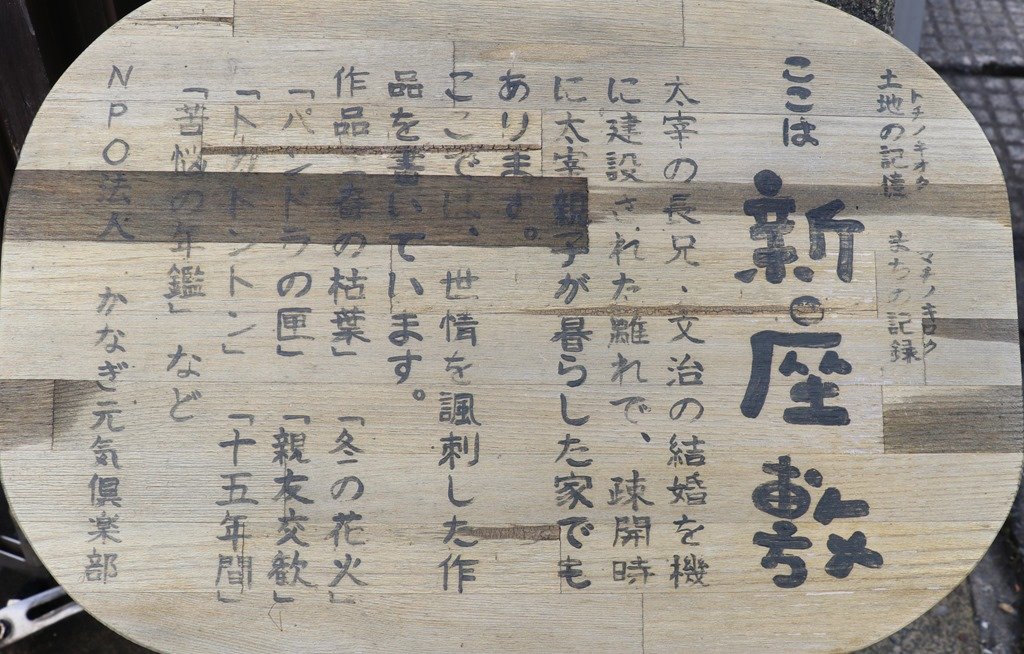 トチノキオク マチノキロク
土地の記憶 まちの記録
ここは 新座敷
太宰の長兄、文治の結婚を機
に建設された離れで、疎開時
に太宰親子が暮らした家でも
あります。
ここでは、世情を諷刺した作
品を書いています。
作品「春の枯葉」「冬の花火」
「パンドラの匣」「親友交歓」
「トカトントン」「十五年間」
「苦悩の年鑑」など
NPO法人 かなぎ元気倶楽部